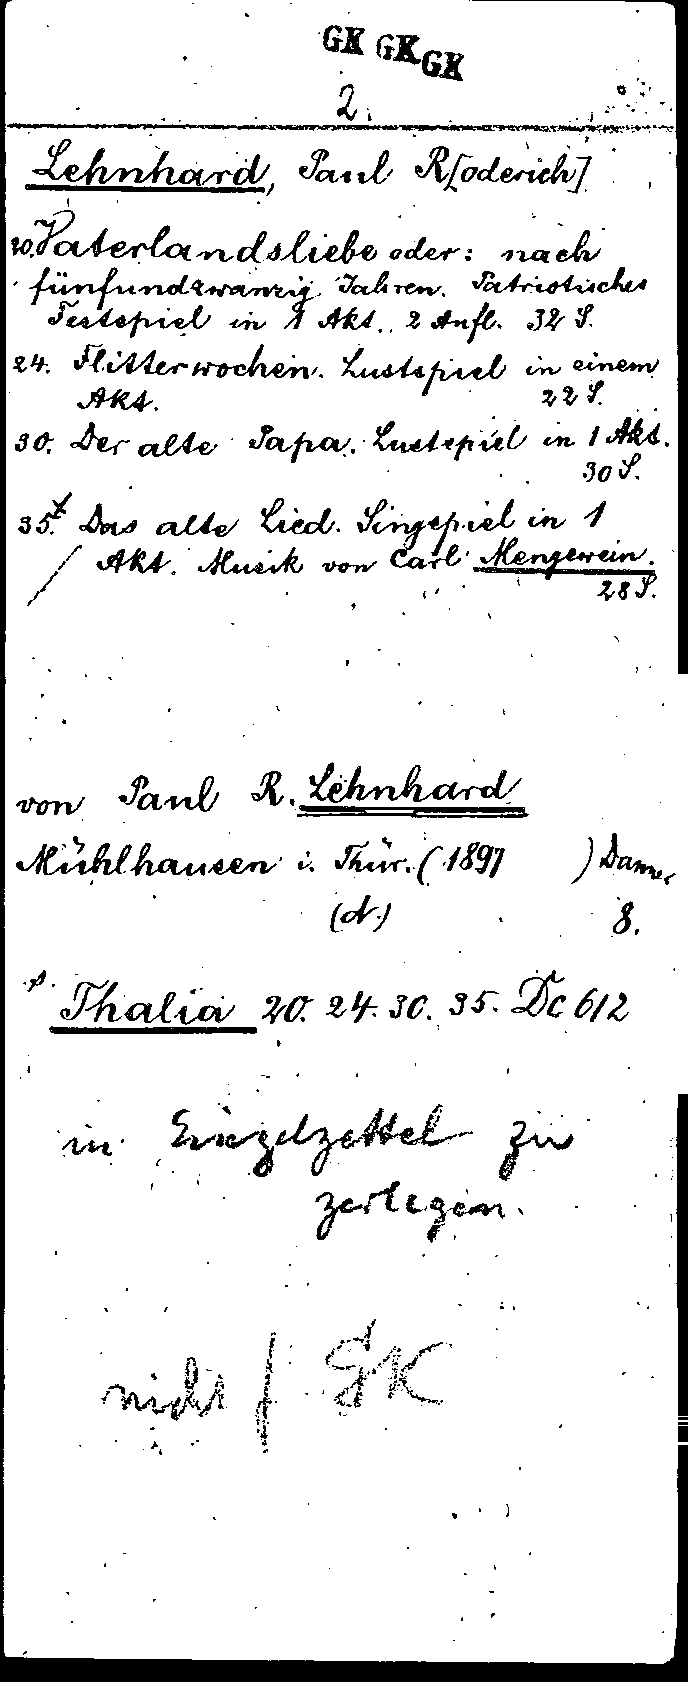 GK GK GK
2.
Lehnhard, Paul R[oderich]
20. Vaterlandsliebe oder: nach
fünfundzwanzig Jahren. Patriotisches
Festspiel in 1 Akt. 2 Aufl. 32 S.
24. Flitterwochen. Lustspiel in einem
Akt. 22 S.
30. Der alte Papa. Lustspiel in 1 Akt.
30 S.
35. Das alte Lied. Singspiel in 1
Akt. Musik von Carl Mengewein.
28 S.
von Paul R. Lehnhard
Mühlhausen i. Thür. (1897 ) Danner
(d.) 8.
Thalia 20. 24. 30. 35. Dc 612
in Einzelzettel zu
zerlegen.
nicht f GK